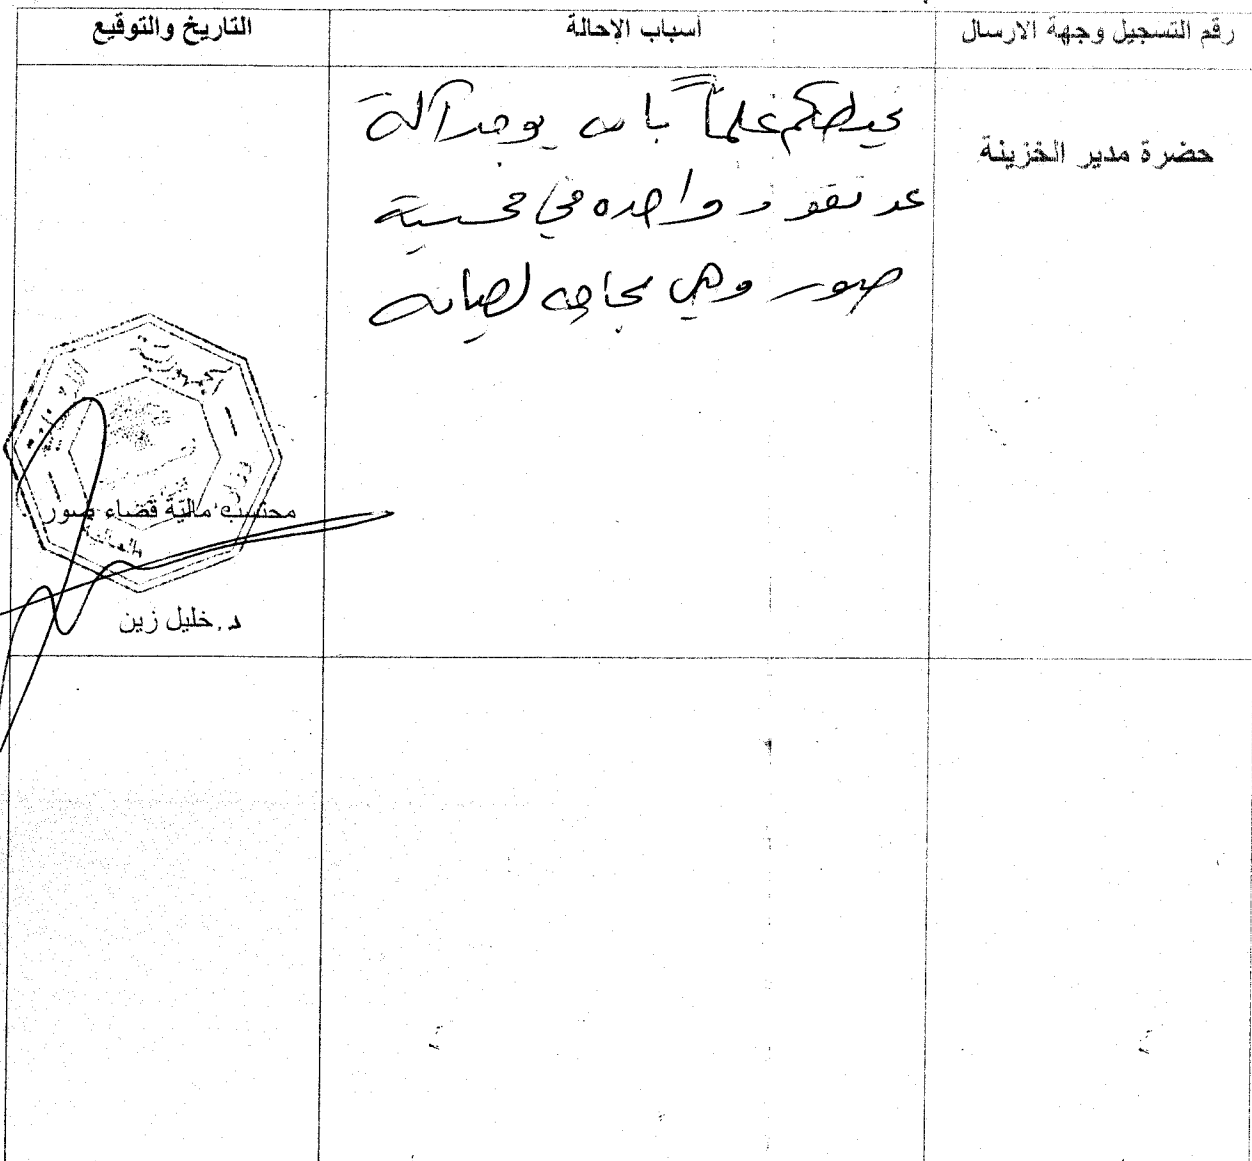 رقم التسجيل وجهة الارسال
أسباب الإحالة
التاريخ والتوقيع
حضرة مدير الخزينة
نحيطكم علماً بانه يوجد آلة
عد نقود واحده في محتسبية
صور وهي بحاجه لصيانه
الجمهورية اللبنانية
وزارة المالية
محتسب مالية قضاء صور
د. خليل زين